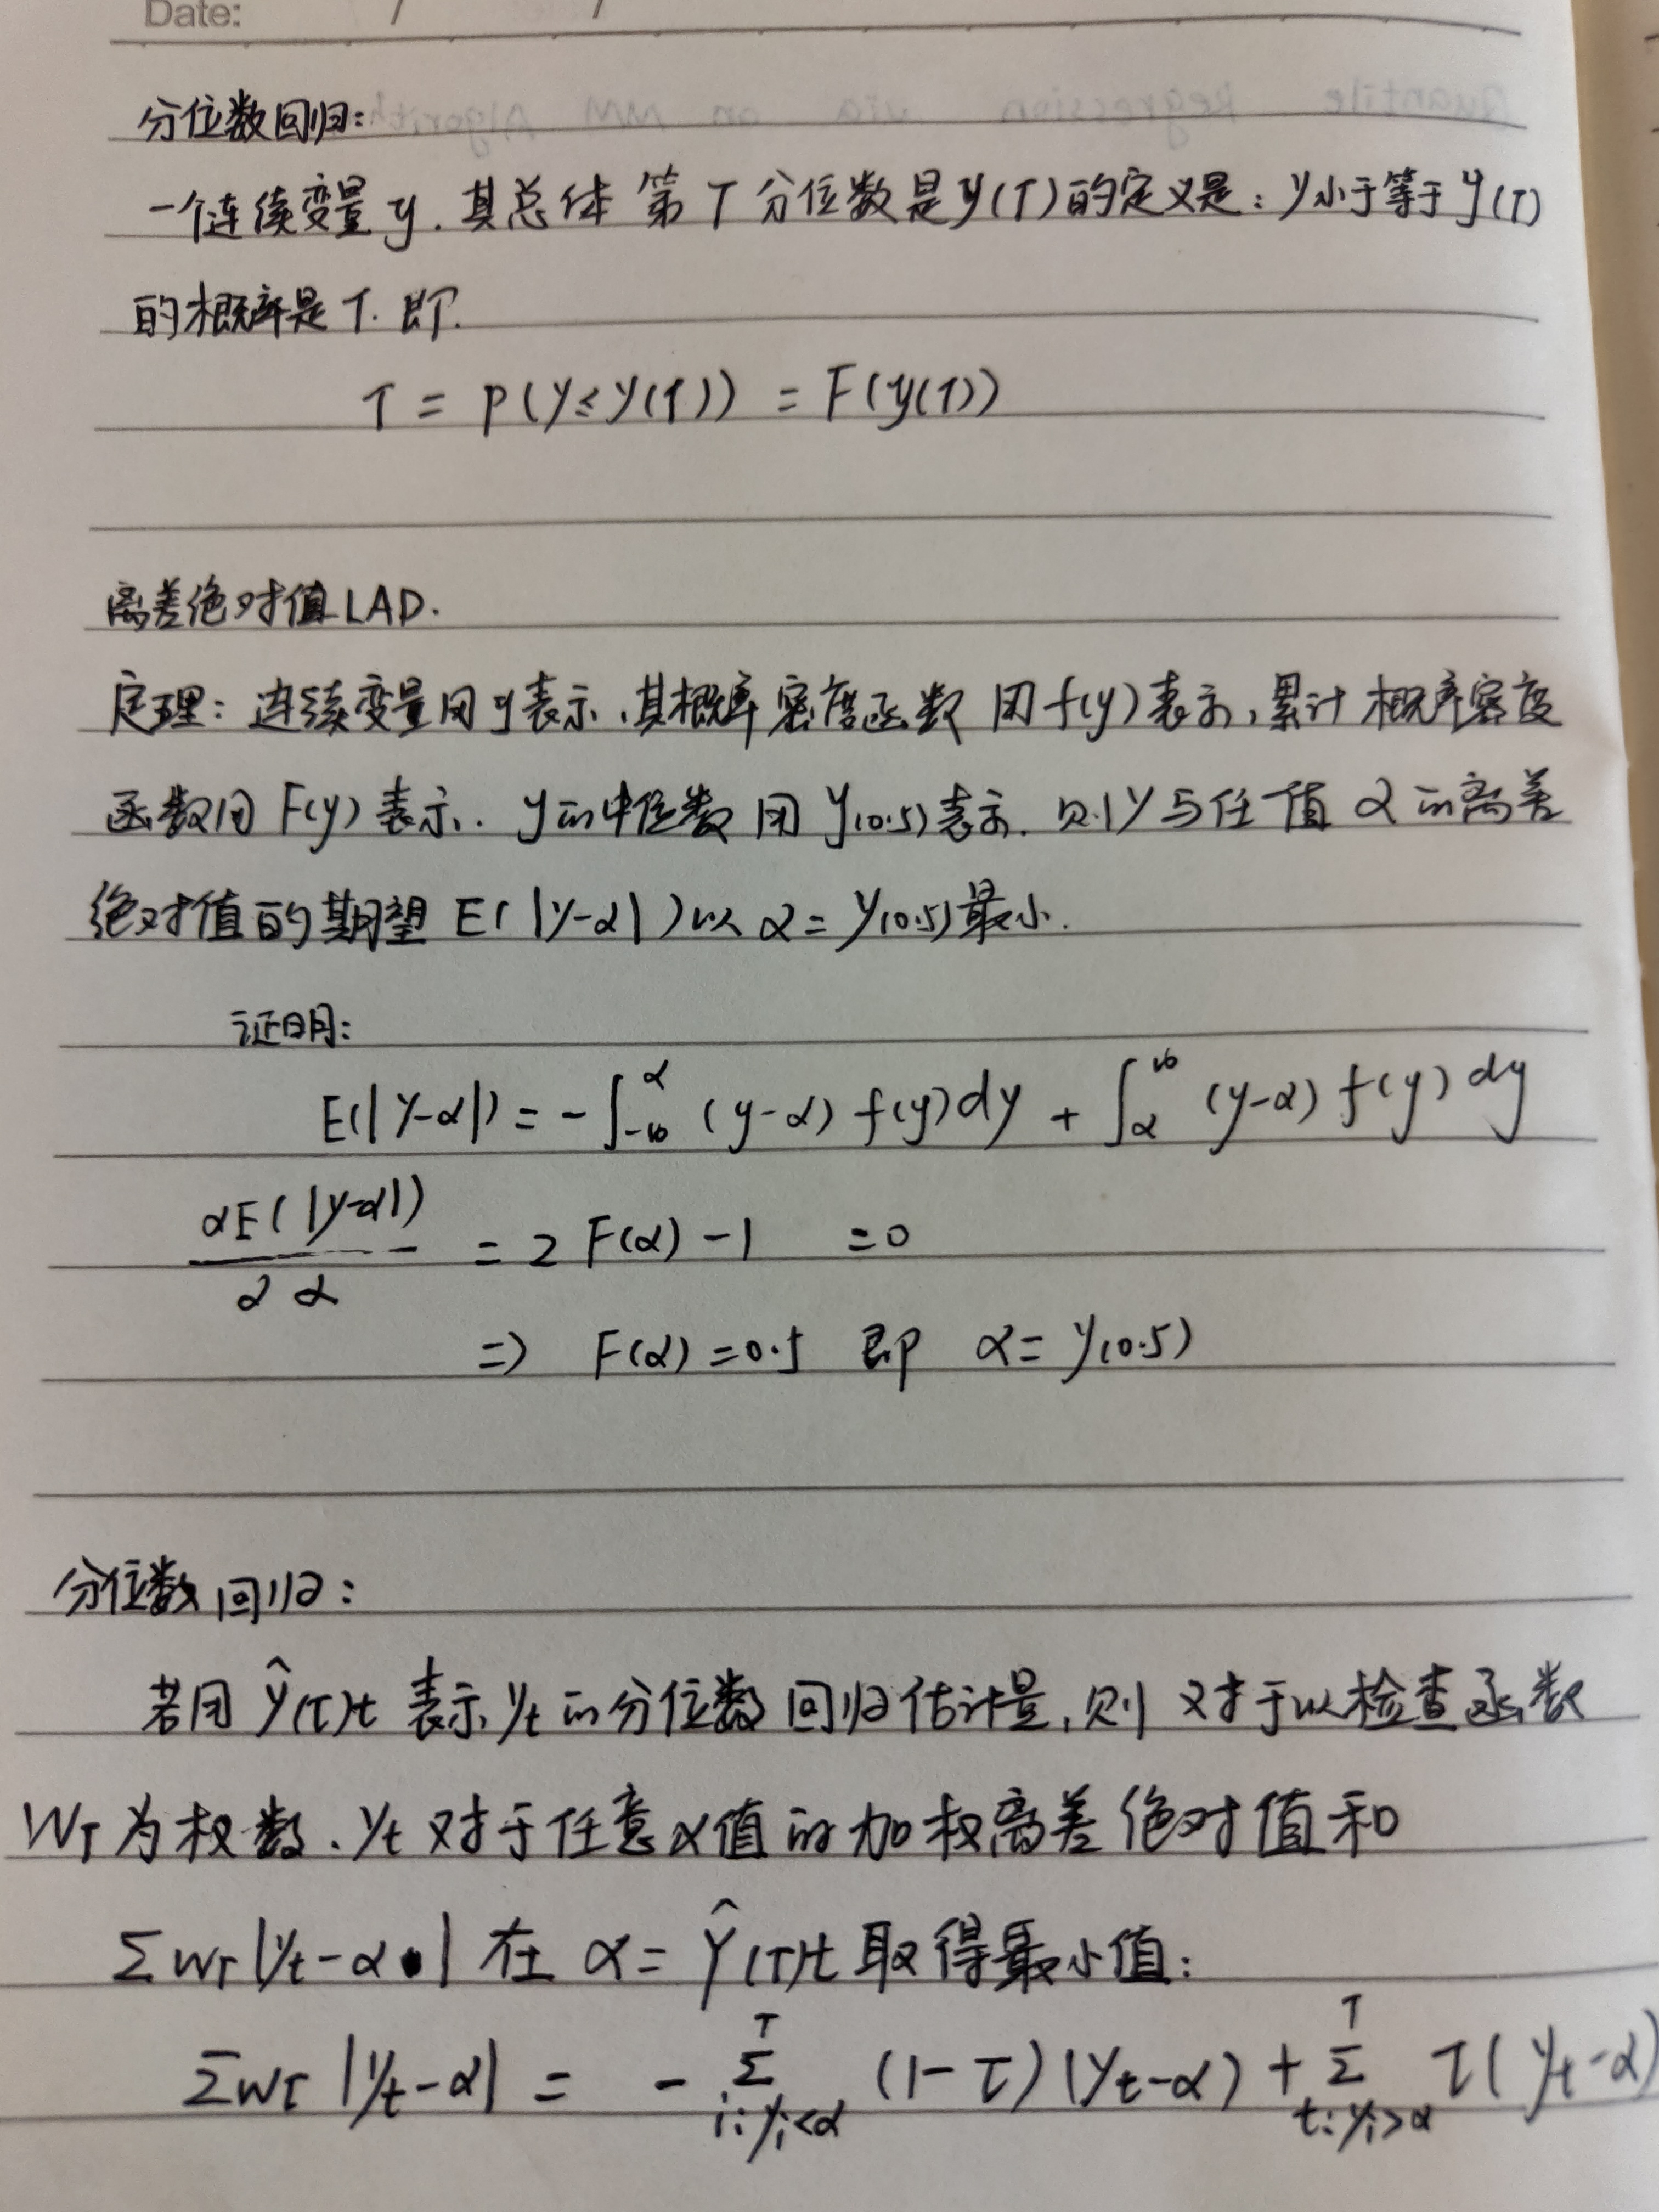 Date: / /
分位数回归:
一个连续变量y.其总体第τ分位数是y(τ)的定义是:y小于等于y(τ)
的概率是τ.即.
τ = P(y≤y(τ)) = F(y(τ))
离差绝对值LAD.
定理:连续变量用y表示,其概率密度函数用f(y)表示,累计概率密度
函数用F(y)表示.y的中位数用y(0.5)表示.则y与任一值α的离差
绝对值的期望E(|y-α|)以α=y(0.5)最小.
证明:
E(|y-α|) = -∫_{-∞}^{α} (y-α) f(y)dy + ∫_{α}^{∞} (y-α) f(y) dy
∂E(|y-α|)/∂α = 2F(α)-1 =0
=> F(α)=0.5 即 α=y(0.5)
分位数回归:
若用ŷ(τ)t表示yt的分位数回归估计量,则对于以检查函数
Wτ为权数.yt对于任意α值的加权离差绝对值和
ΣWτ|yt-α|在α=ŷ(τ)t取得最小值:
ΣWτ|yt-α| = -Σ_{i:yi<α}^{T} (1-τ)(yt-α)+Σ_{t:yi>α}^{T} τ(yt-α)